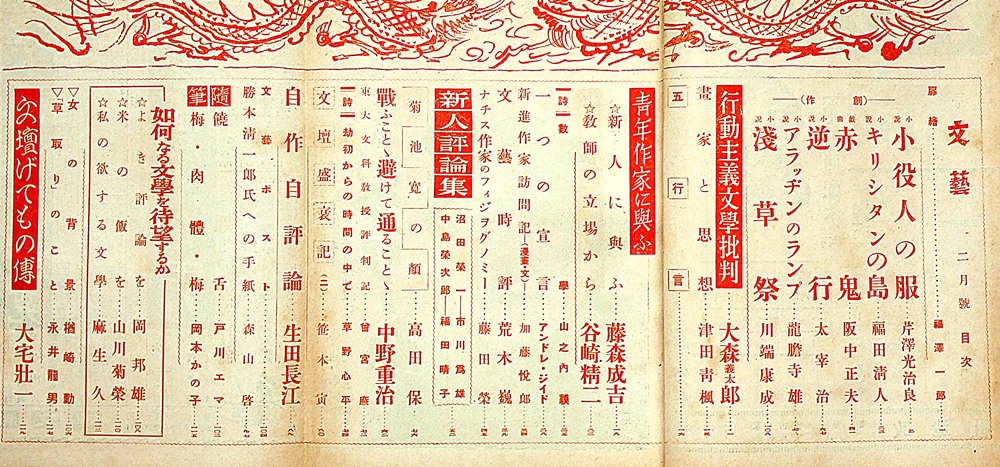 文藝 二月號目次
扉繪 福澤一郎
創作
小説 小役人の服 芹澤光治良
小説 キリシタンの島 福田淸人
戲曲 赤鬼 阪中正夫
小説 逆行 太宰治
小説 アラッヂンのランプ 龍膽寺雄
小説 淺草祭 川端康成
行動主義文學批判 大森義太郎
畫家と思想 津田靑楓
五行言
靑年作家に與ふ
☆新人に與ふ 藤森成吉
☆敎師の立場から 谷崎精二
詩 數學 山之內
一つの宣言 アンドレ・ジイド
新進作家訪問記(漫畫・文) 加藤悅郎
文藝時評 荒木巍
ナチス作家のフィジヲグノミー 藤田榮
新人評論集
沼田榮一 市川爲雄
中島榮次郎 福田晴子
菊池寬の顏 高田保
戰ふことゝ避けて通ることゝ 中野重治
東大文科敎授評判記 曾宮
詩 劫初からの時間の中で 草野心平
文壇盛衰記(二) 笹本寅
自作自評論 生田長江
文藝ポスト
勝本淸一郎氏への手紙 森山啓
隨筆
饒舌 戸川エマ
梅・肉體・梅 岡本かの子
如何なる文學を待望するか
☆よき評論を 岡邦雄
☆米の飯を 山川菊榮
☆私の欲する文學 麻生久
▽女の背景 楢崎勤
▽「草取り」のこと 永井龍男
文壇げてもの傳 大宅壯一